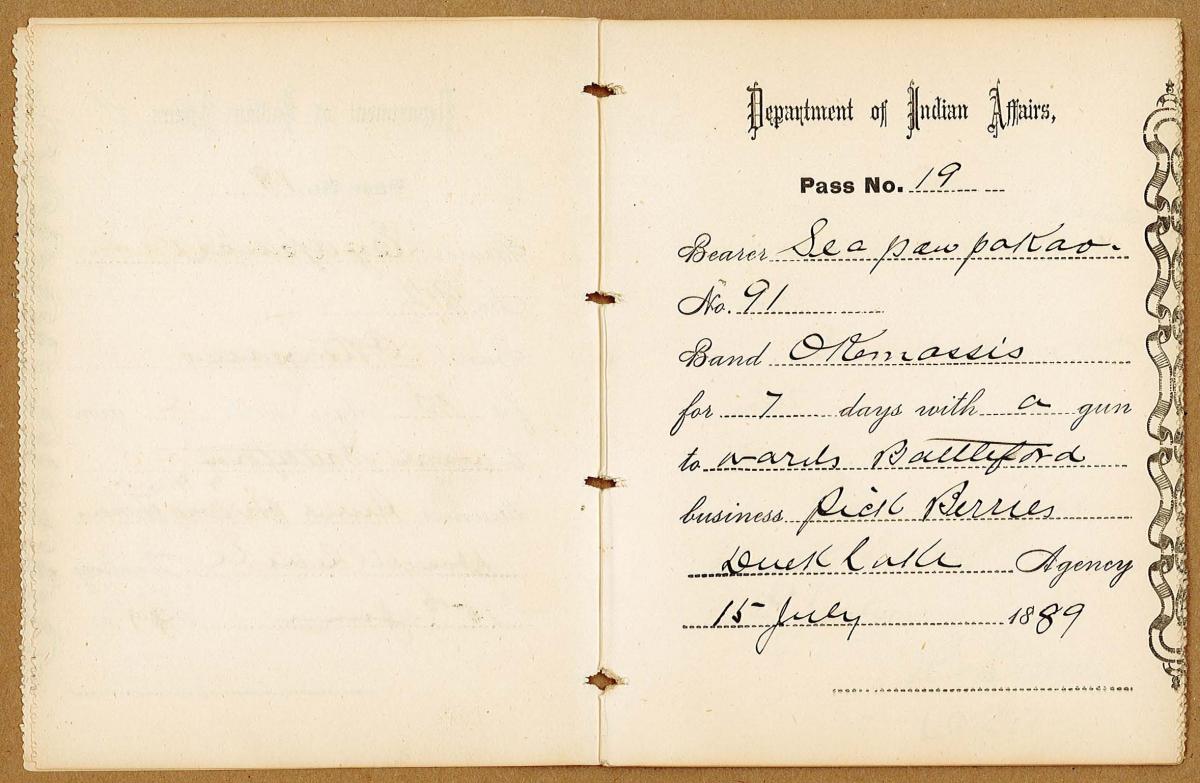 Department of Indian Affairs,
Pass No. 19
Bearer Sea paw pakao.
No. 91
Band Okemassis
for 7 days with a gun
to wards Battleford
business Pick Berries
Duck Lake Agency
15 July 1889